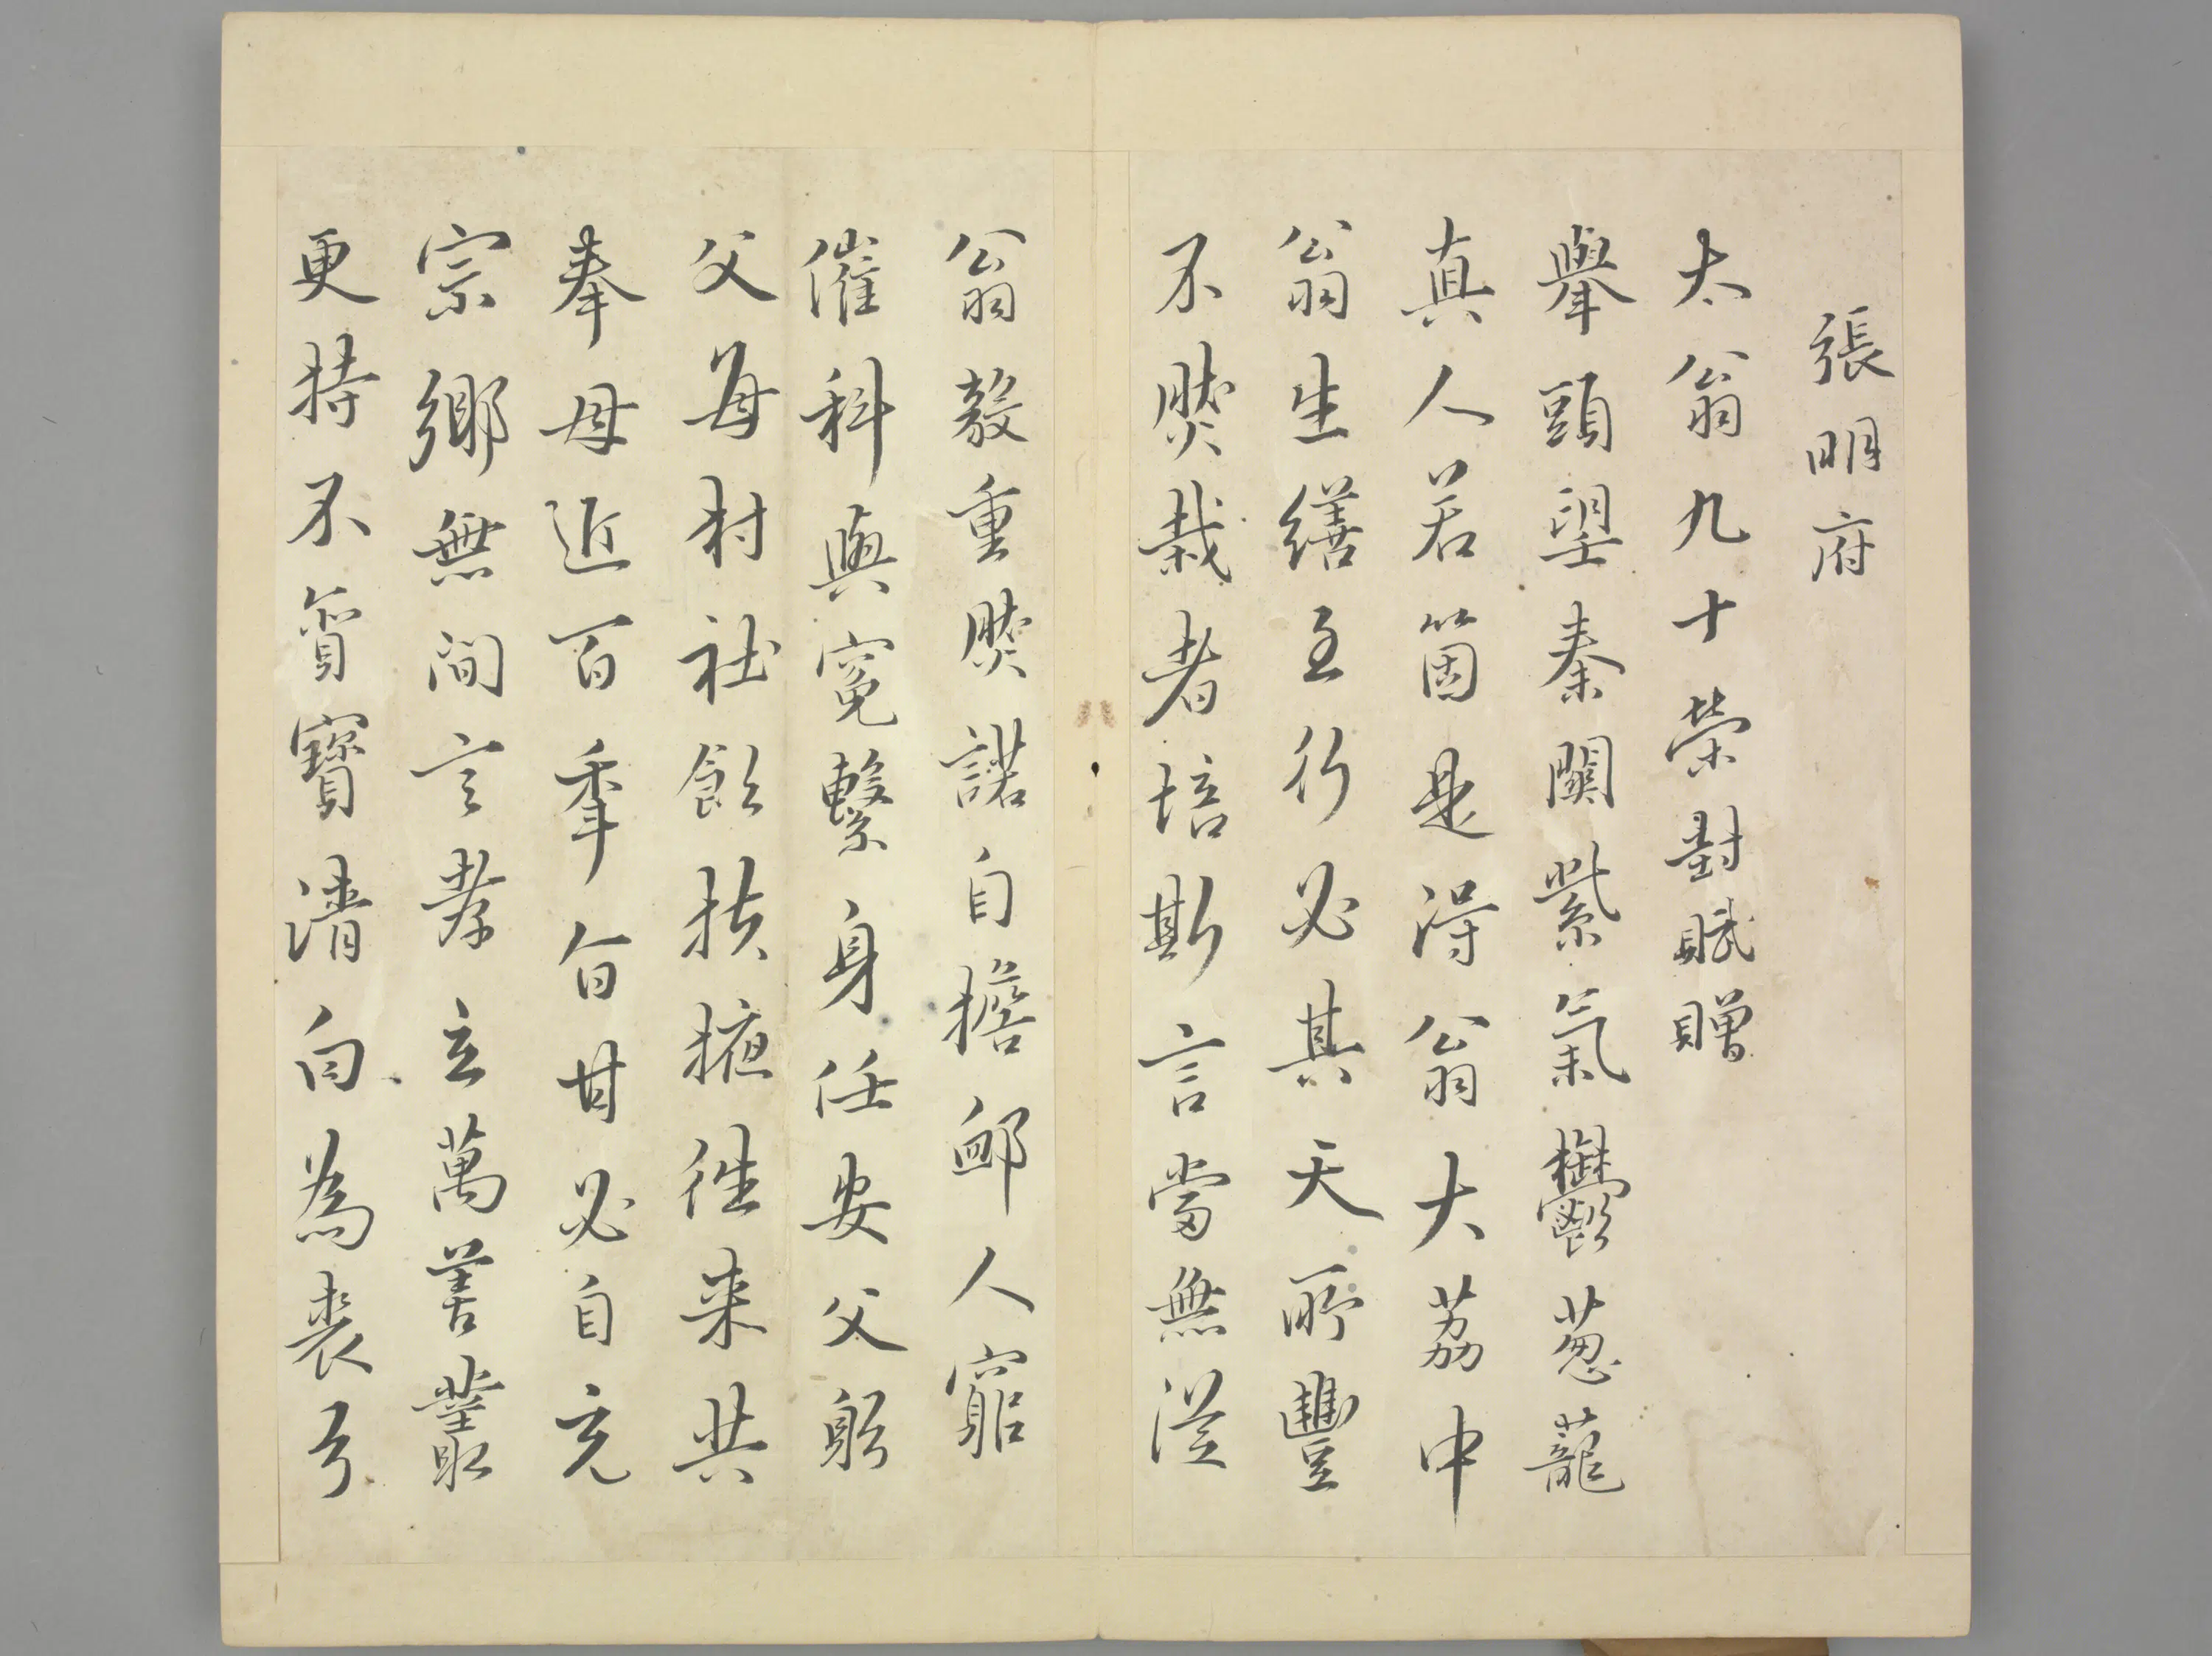 張明府
太翁九十榮封賦贈
舉頭望秦關紫氣鬱葱蘢
真人若箇是得翁大荔中
翁生繕至行必其天所豐
不然栽者培斯言當無從
翁敦重然諾自擔卹人窮
催科與冤繫身任安父躬
父每村社飲扶掖往来共
奉母近百年旨甘必自充
宗鄉無間言孝立萬善叢
更持不貪寶清白為裘弓